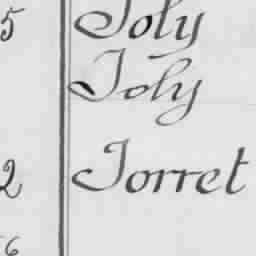 5 Joly
Joly
2 Jorret
6